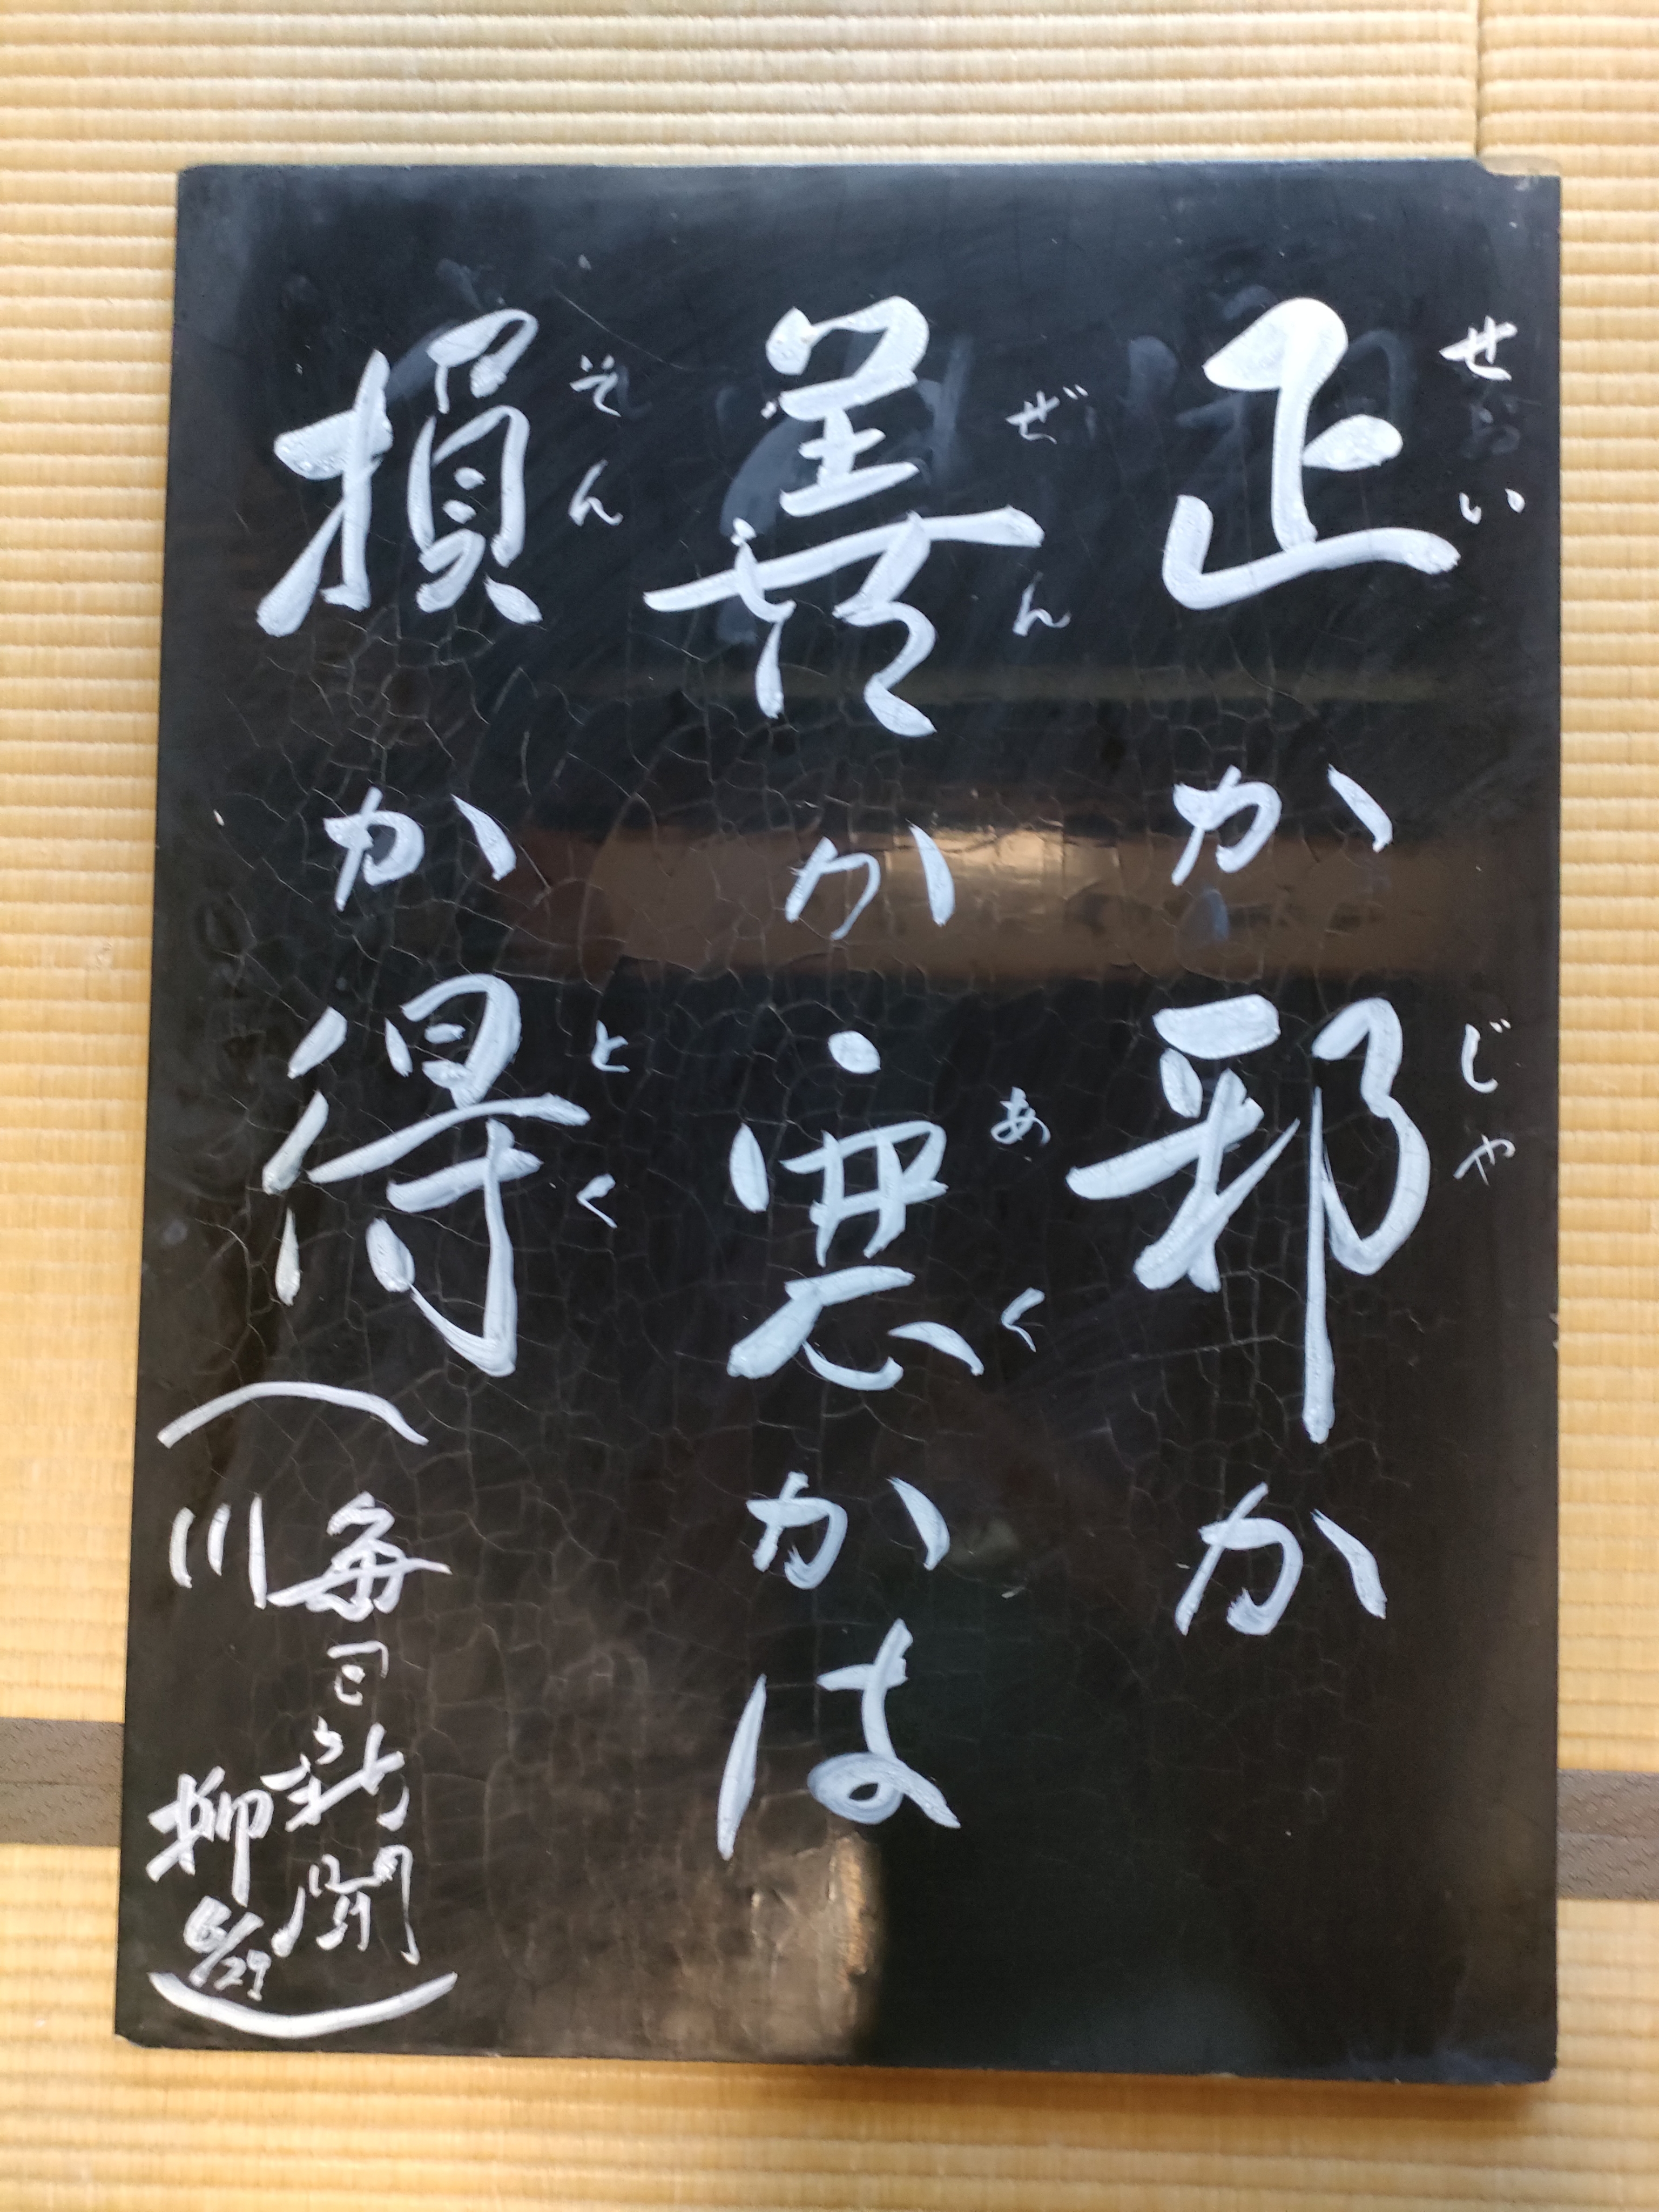 正か邪か
せい じゃ
善か悪かは
ぜん あく
損か得
そん とく
(毎日新聞
川柳 6/29)